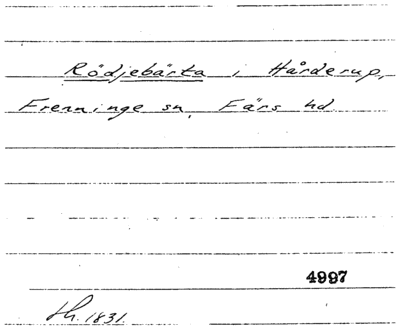 Rödjebärta i Hårderup,
Frenninge sn, Färs hd
4997
th. 1831.